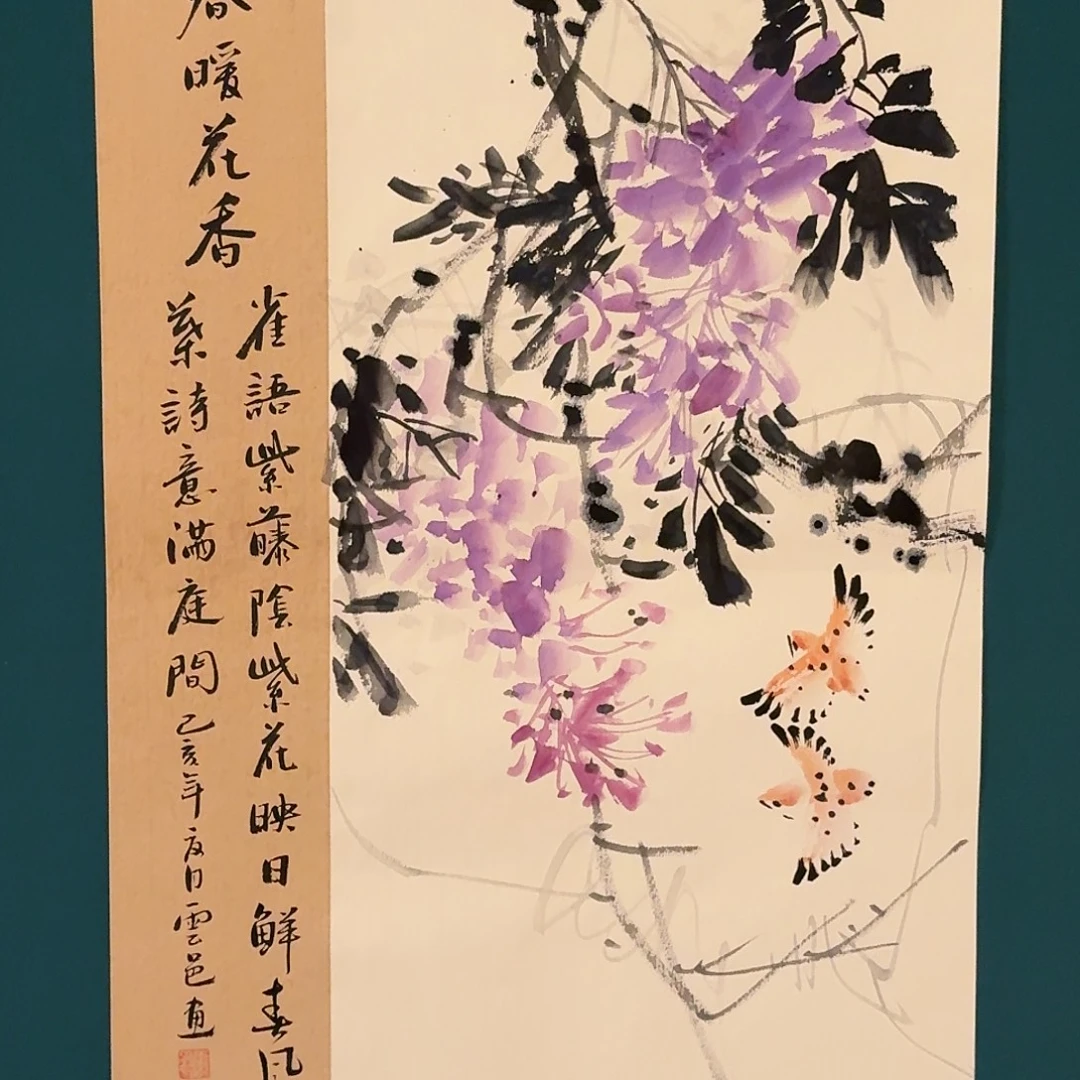 春暖花香
雀語紫藤陰紫花映日鮮春風
葉詩意滿庭間
己亥年夏月雲邑画